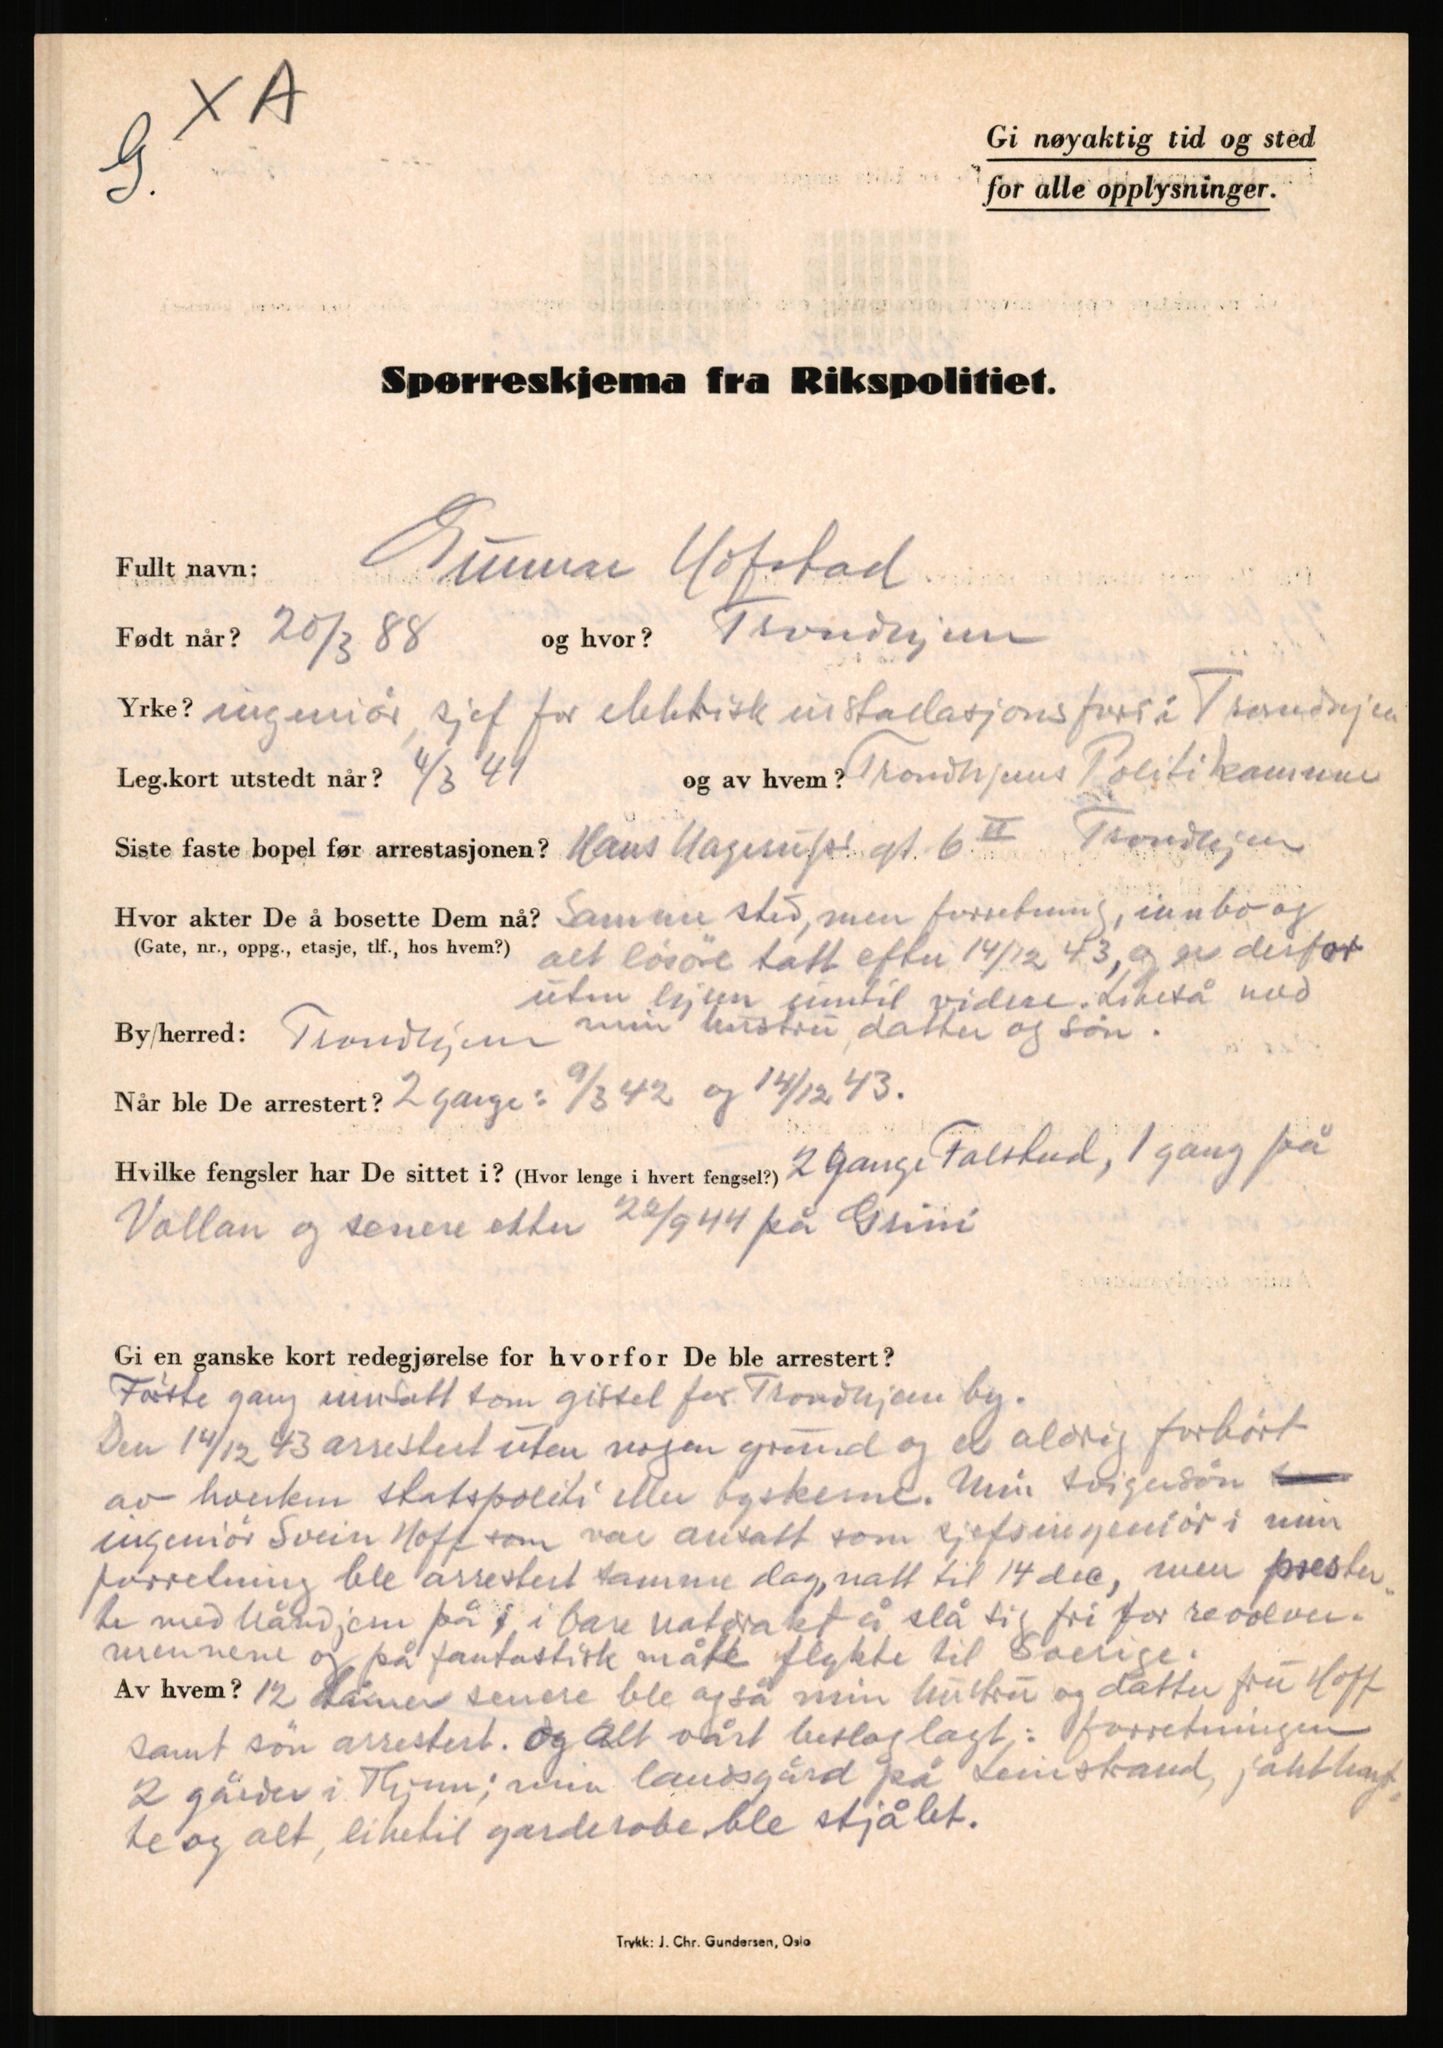 G. X A
Gi nøyaktig tid og sted
for alle opplysninger.
Spørreskjema fra Rikspolitiet.
Fullt navn: Gunnar Hofstad
Født når? 20/3 88 og hvor? Trondhjem
Yrke? ingeniør, sjef for elektrisk installasjonsforr i Trondhjem
Leg.kort utstedt når? 4/3 41 og av hvem? Trondhjems Politikammer
Siste faste bopel før arrestasjonen? Hans Hagerups gt. 6 II Trondhjem
Hvor akter De å bosette Dem nå? Samme sted, men forretning, innbo og
(Gate, nr., oppg., etasje, tlf., hos hvem?) alt løsøre tatt efter 14/12 43, og er derfor
uten hjem inntil videre. Likeså med
By/herred: Trondhjem min hustru, datter og søn.
Når ble De arrestert? 2 gange: 9/3 42 og 14/12 43.
Hvilke fengsler har De sittet i? (Hvor lenge i hvert fengsel?) 2 gange Falstad, 1 gang på
Vollan og senere etter 22/9 44 på Grini
Gi en ganske kort redegjørelse for hvorfor De ble arrestert?
Første gang innsatt som gissel for Trondhjem by.
Den 14/12 43 arrestert uten nogen grund og er aldrig forhørt
av hverken statspoliti eller tyskerne. Min svigersøn
ingeniør Svein Hoff som var ansatt som sjefsingeniør i min
forretning ble arrestert samme dag, natt til 14 dec, men
te med håndjern på, i bare natdrakt å slå sig fri for revolver-
mennene og på fantastisk måte flykte til Sverige.
Av hvem? 12 timer senere ble også min hustru og datter fru Hoff
samt søn arrestert. Og alt vårt beslaglagt: forretningen
2 gårder i Thjem; min landsgård på Leinstrand, jakthyt-
te og alt, liketil garderobe ble stjålet.
Trykk: J. Chr. Gundersen, Oslo